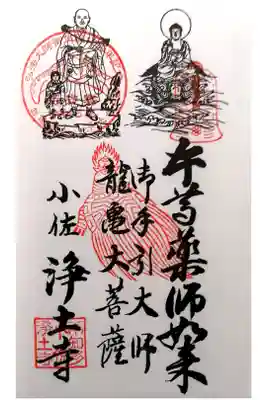 午菩薬師如来
御手引大師
龍亀大菩薩
小佐
浄土寺